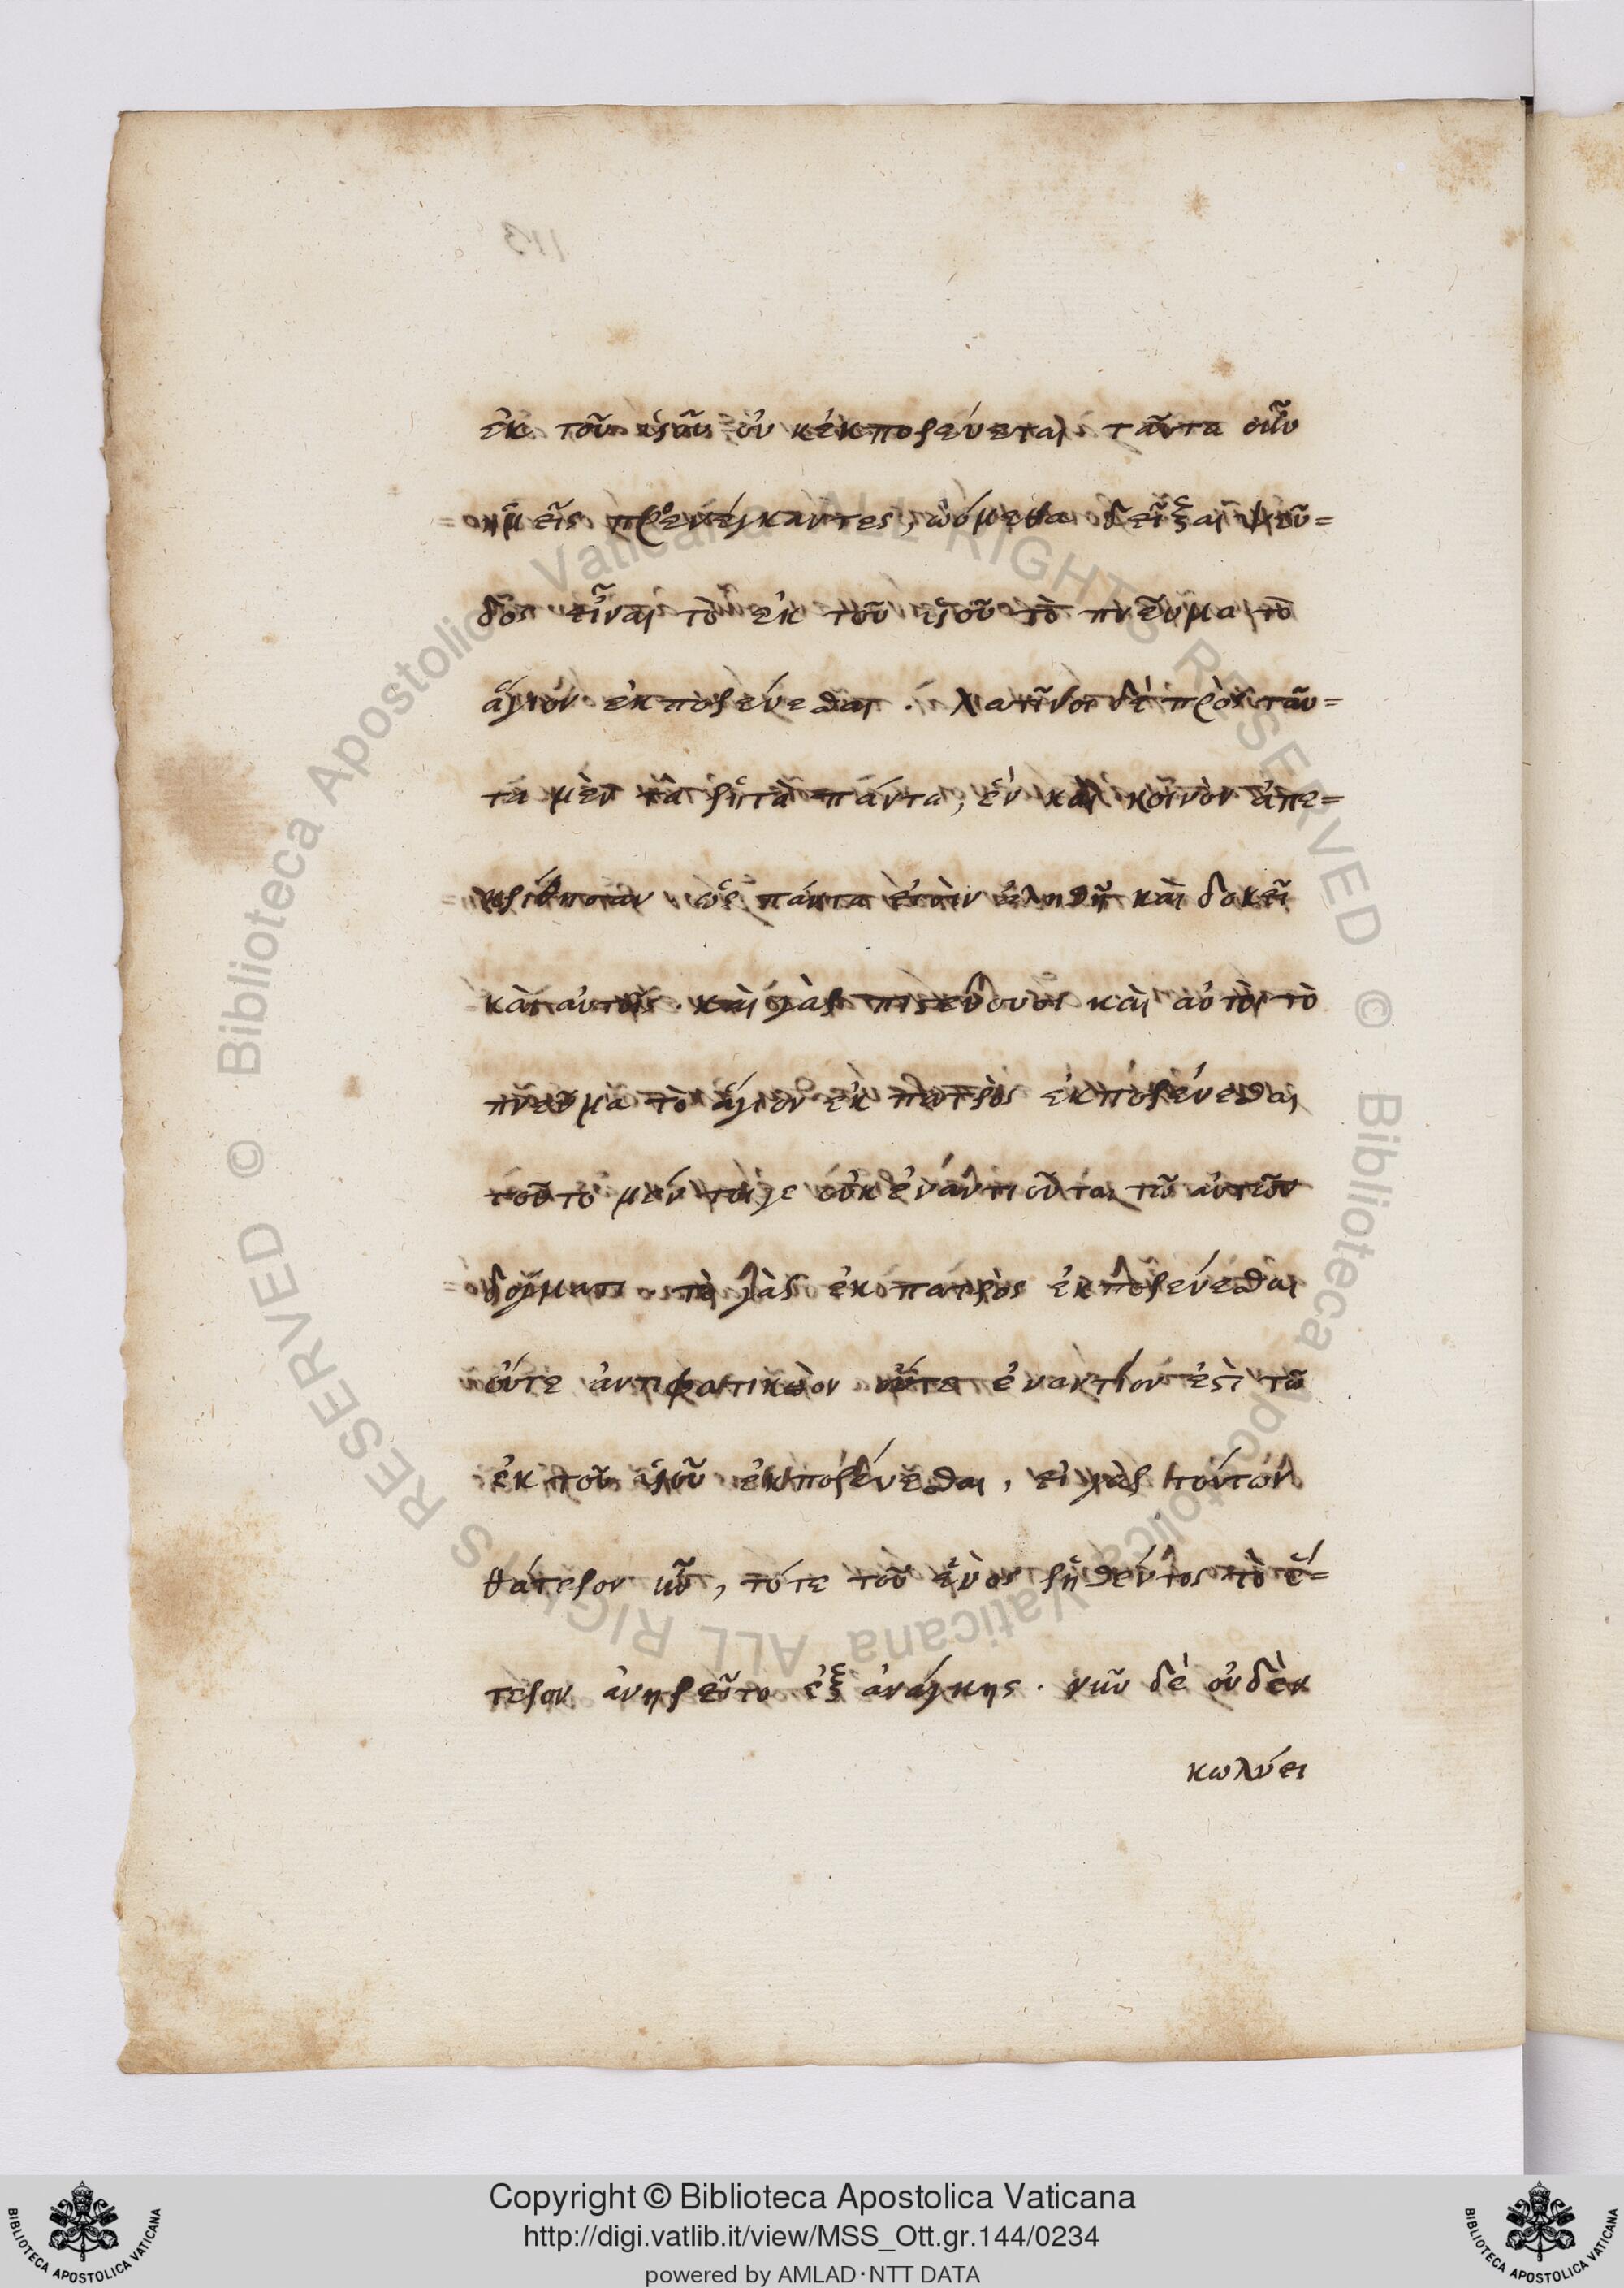 ἐκ τοῦ υἱοῦ οὐκ ἐκπορεύεται ταῦτα οὖν
ἡμεῖς προενέγκαντες, ᾠόμεθα δεῖξαι ψεῦ=
δος εἶναι τὸ ἐκ τοῦ υἱοῦ τὸ πνεῦμα τὸ
ἅγιον ἐκπορεύεσθαι . λατῖνοι δὲ πρὸς ταῦ=
τα μὲν τὰ ῥητὰ πάντα, ἓν καὶ κοινὸν ἀπε=
κρίθησαν ὡς πάντα ἐστὶν ἀληθῆ καὶ δοκεῖ
καὶ αὐτοῖς . καὶ γὰρ πιστεύουσι καὶ αὐτοὶ τὸ
πνεῦμα τὸ ἅγιον ἐκ πατρὸς ἐκπορεύεσθαι
τοῦτο μέν τοιγε οὐκ ἐναντιοῦται τῶ αὐτῶν
δόγματι . τὸ γὰρ ἐκ πατρὸς ἐκπορεύεσθαι
οὔτε ἀντιφατικὸν οὔτε ἐναντίον ἐστὶ τῶ
ἐκ τοῦ υἱοῦ ἐκπορεύεσθαι , εἰ γὰρ τούτων
θάτερον ἦν , τότε τοῦ ἑνὸς ῥηθέντος τὸ ἕ=
τερον ἀνηρεῖτο ἐξ ἀνάγκης . νῦν δὲ οὐδὲν
κωλύει
Copyright © Biblioteca Apostolica Vaticana
http://digi.vatlib.it/view/MSS_Ott.gr.144/0234
powered by AMLAD·NTT DATA
BIBLIOTECA APOSTOLICA VATICANA
BIBLIOTECA APOSTOLICA VATICANA
© Biblioteca Apostolica Vaticana ALL RIGHTS RESERVED
© Biblioteca Apostolica Vaticana ALL RIGHTS RESERVED